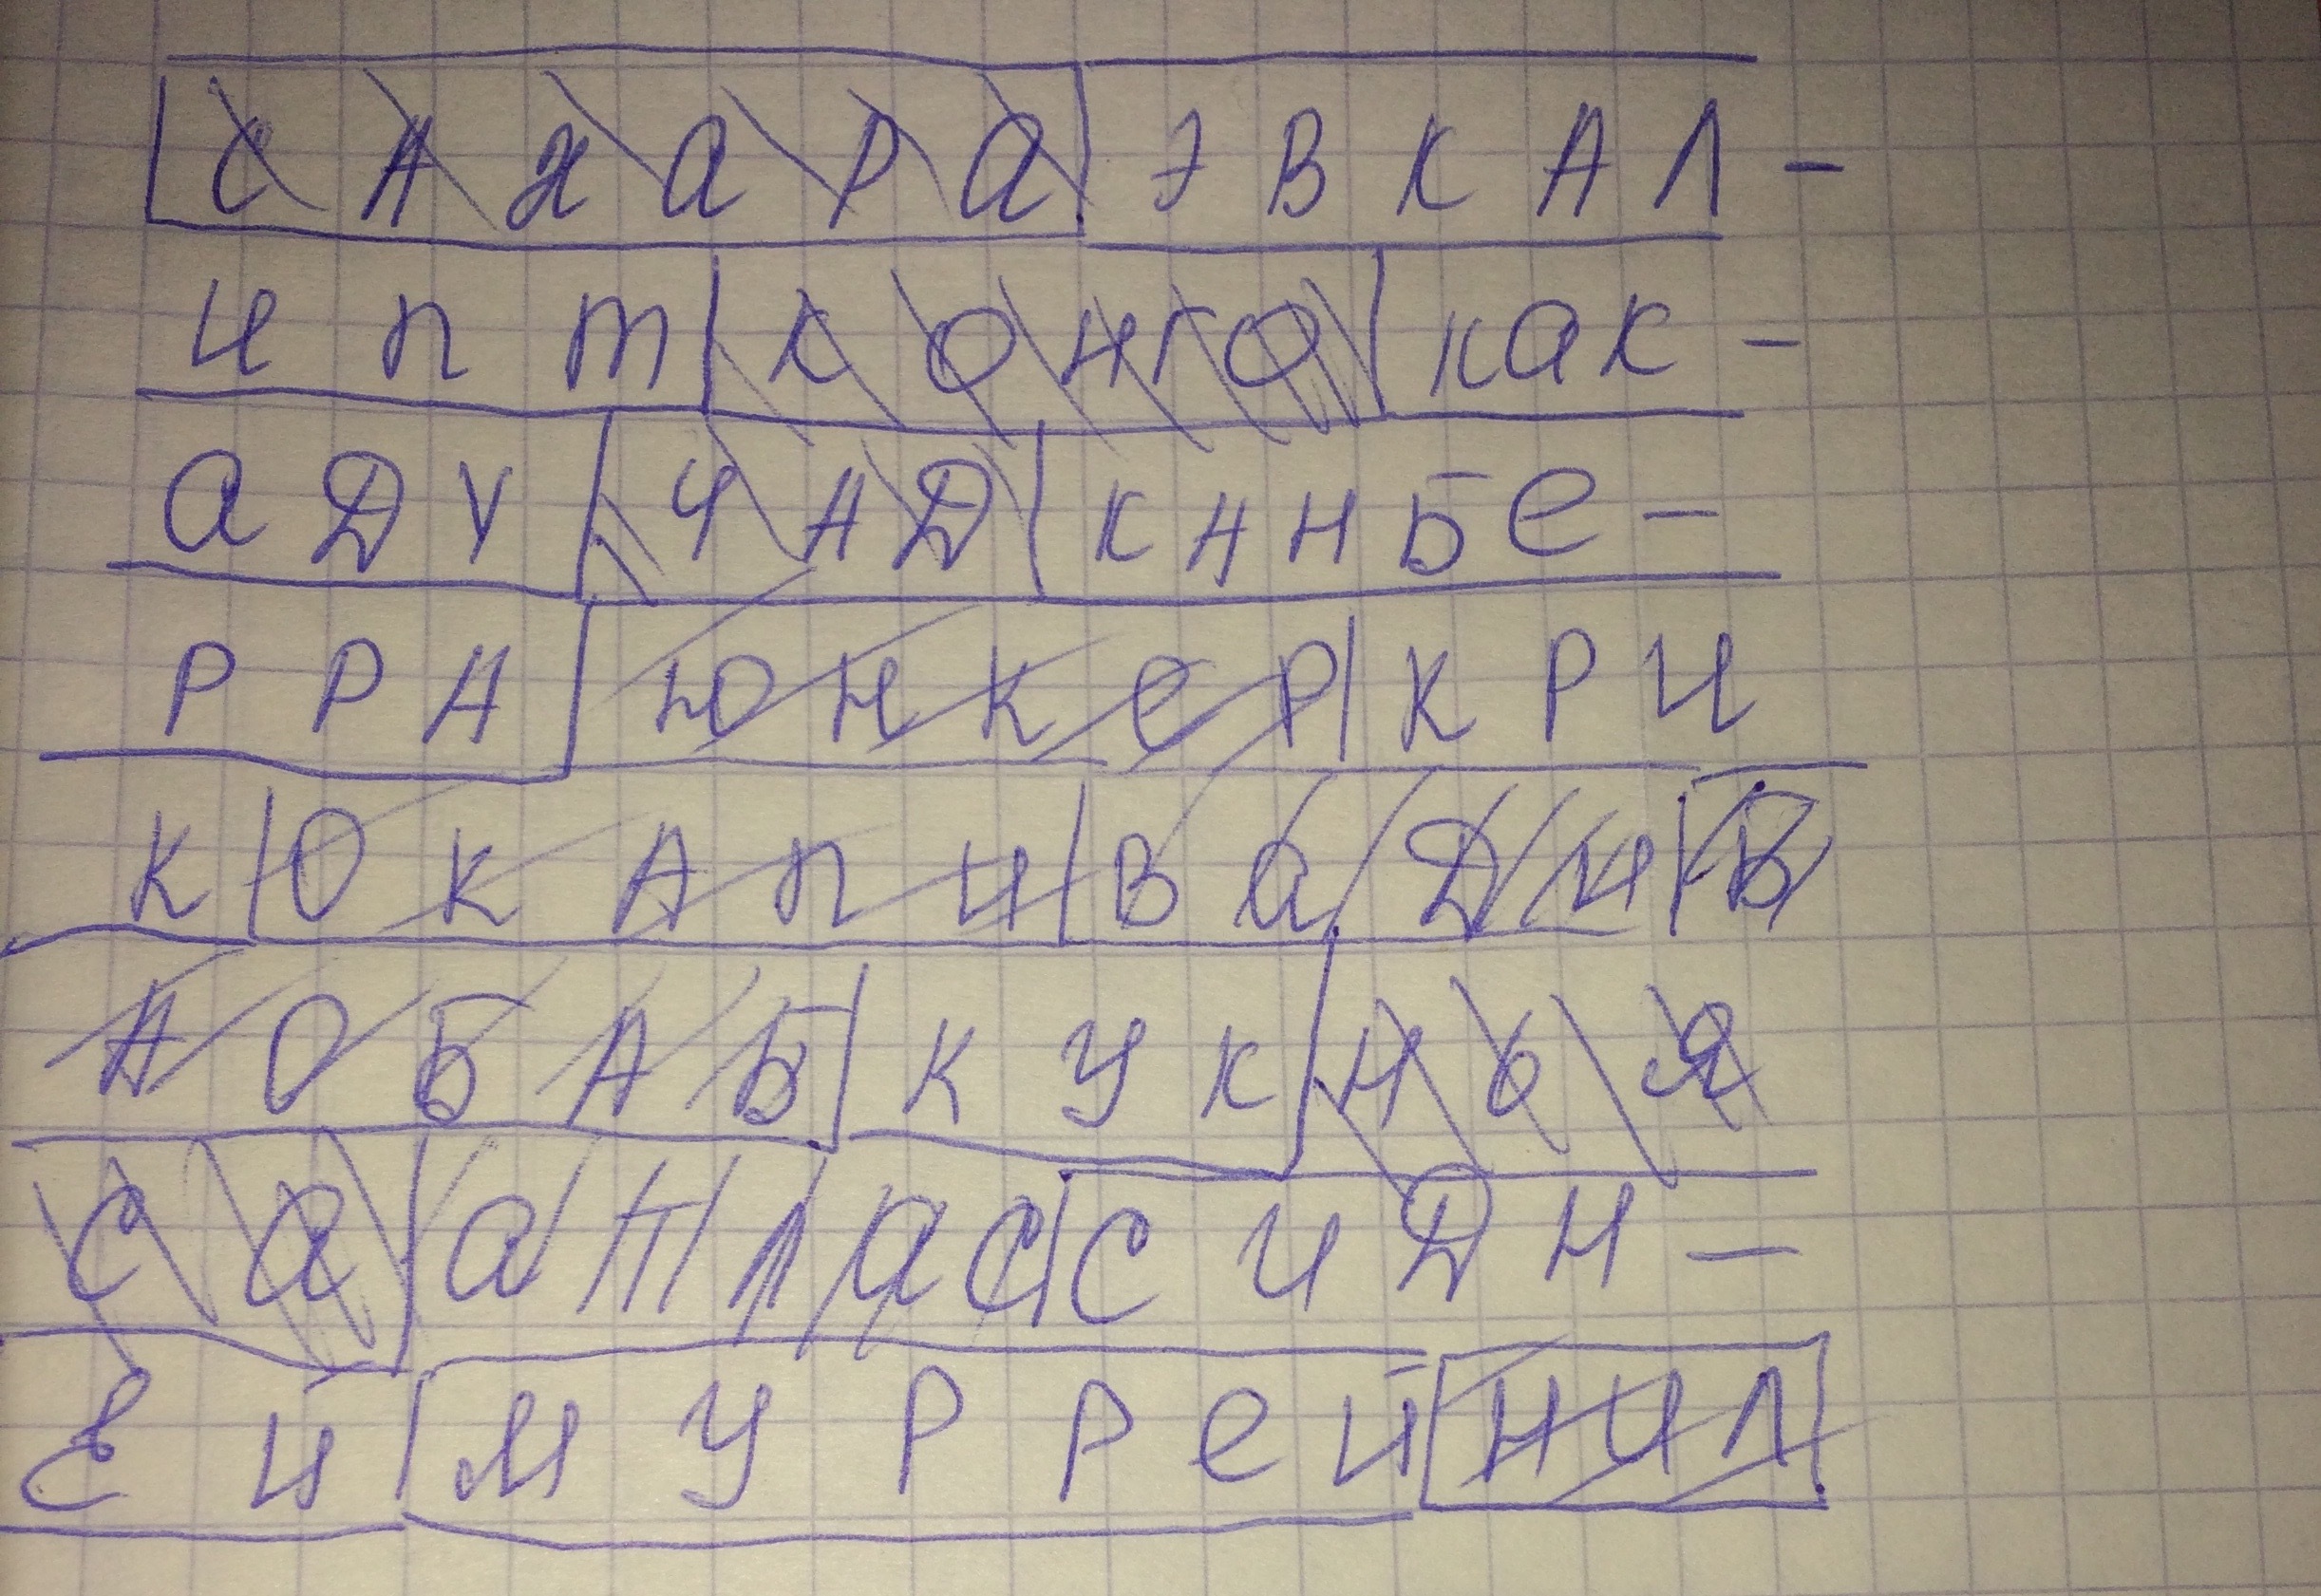 САХАРА ЭВКАЛ-
ИПТ КОНГО КАК-
АДУ ЧАД КАНБЕ-
РРА ЮНКЕР КРИ
К ОКАПИ ВАДИ Б
АОБАБ КУК НЬЯ
СА АТЛАС СИДН-
ЕЙ МУРРЕЙ НИЛ